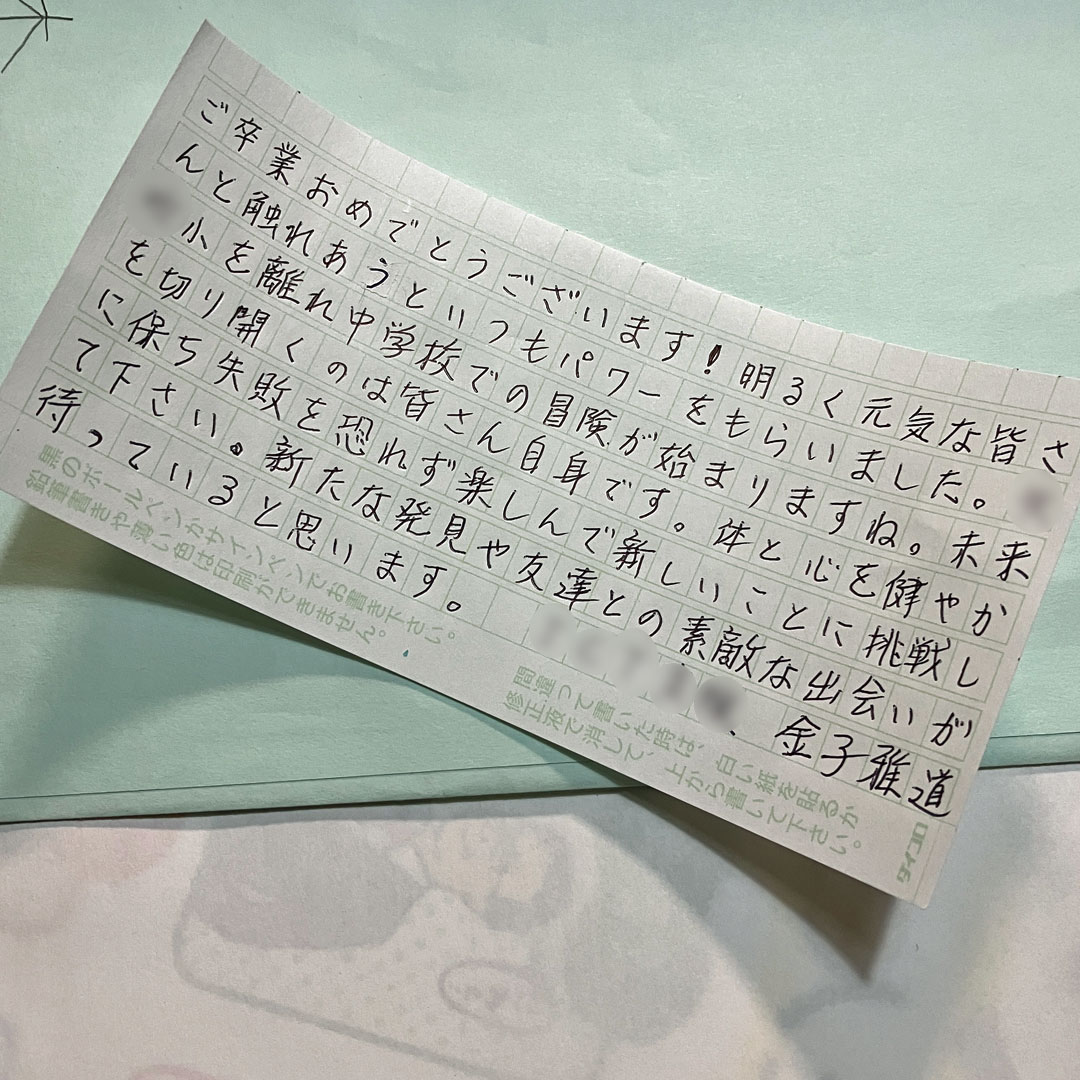 ご卒業おめでとうございます!明るく元気な皆さ
んと触れあうといつもパワーをもらいました。
小を離れ中学校での冒険が始まりますね。未来
を切り開くのは皆さん自身です。体と心を健やか
に保ち失敗を恐れず楽しんで新しいことに挑戦し
て下さい。新たな発見や友達との素敵な出会いが
待っていると思います。
金子雅道
黒のボールペンかサインペンでお書き下さい。
鉛筆書きや薄い色は印刷ができません。
間違って書いた時は、白い紙を貼るか
修正液で消して、上から書いて下さい。
ダイコロ